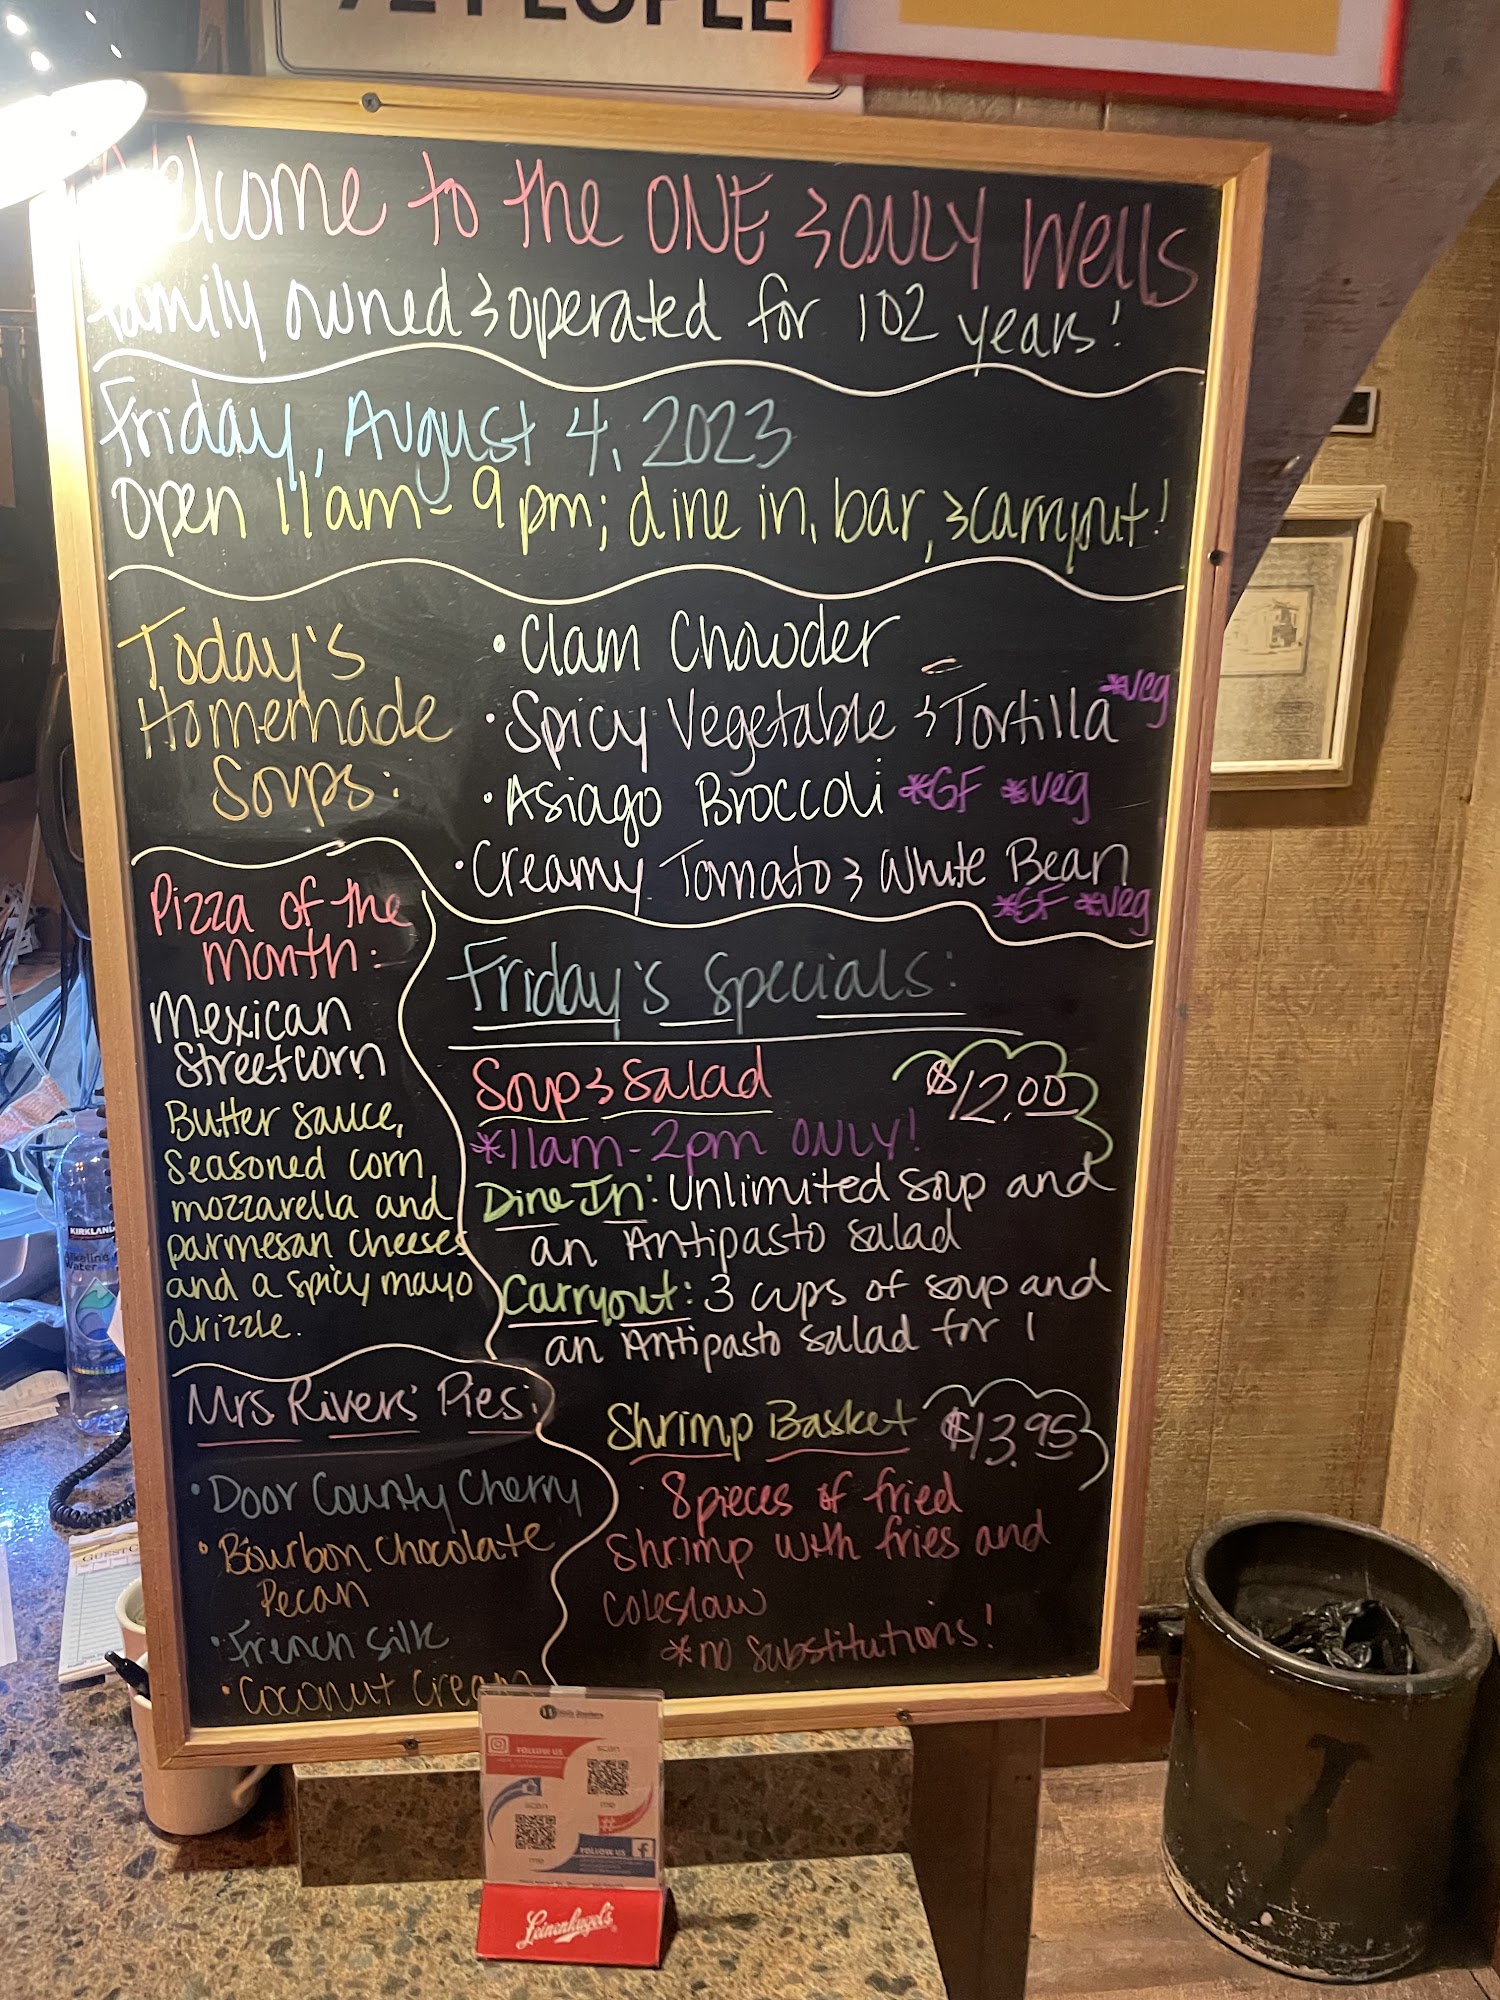 72 PEOPLE
Welcome to the ONE & ONLY Wells
family owned & operated for 102 years!
Friday, August 4, 2023
Open 11am - 9pm; dine in, bar, & carryout!
Today's
Homemade
Soups:
• Clam Chowder
• Spicy Vegetable & Tortilla *veg
• Asiago Broccoli *GF *veg
• Creamy Tomato & White Bean
*GF *veg
Pizza of the
month:
Mexican
Streetcorn
Butter sauce,
seasoned corn,
mozzarella and
parmesan cheeses
and a spicy mayo
drizzle.
Friday's Specials:
Soup & Salad $12.00
*11am-2pm ONLY!
Dine In: Unlimited Soup and
an Antipasto Salad
Carryout: 3 cups of soup and
an Antipasto Salad for 1
Mrs Rivers' Pies:
• Door County Cherry
• Bourbon Chocolate
Pecan
• French Silk
• Coconut Cream
Shrimp Basket $13.95
8 pieces of fried
Shrimp with fries and
coleslaw
*no substitutions!
KIRKLAND
Alkaline
Water
GUEST
FOLLOW US
scan
me
scan
me
#
FOLLOW US
f
Leinenkugel's